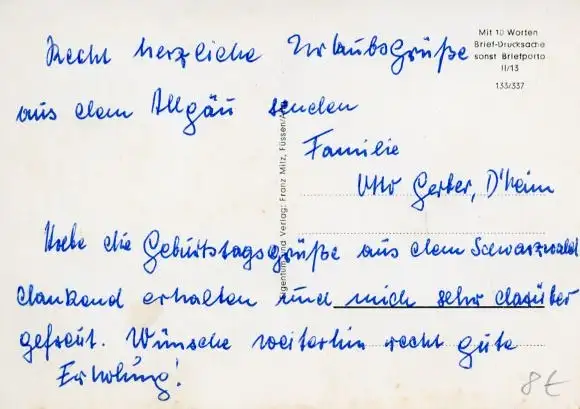 Recht herzliche Urlaubsgrüße
Mit 10 Worten
Brief-Drucksache
sonst Briefporto
II/13
133/337
aus dem Allgäu senden
Familie
Otto Gerber, D'heim
Habe die Geburtstagsgrüße aus dem Schwarzwald
dankend erhalten und mich sehr darüber
gefreut. Wünsche weiterhin recht gute
Erholung!
Eigentum und Verlag: Franz Milz, Füssen/A
8 €